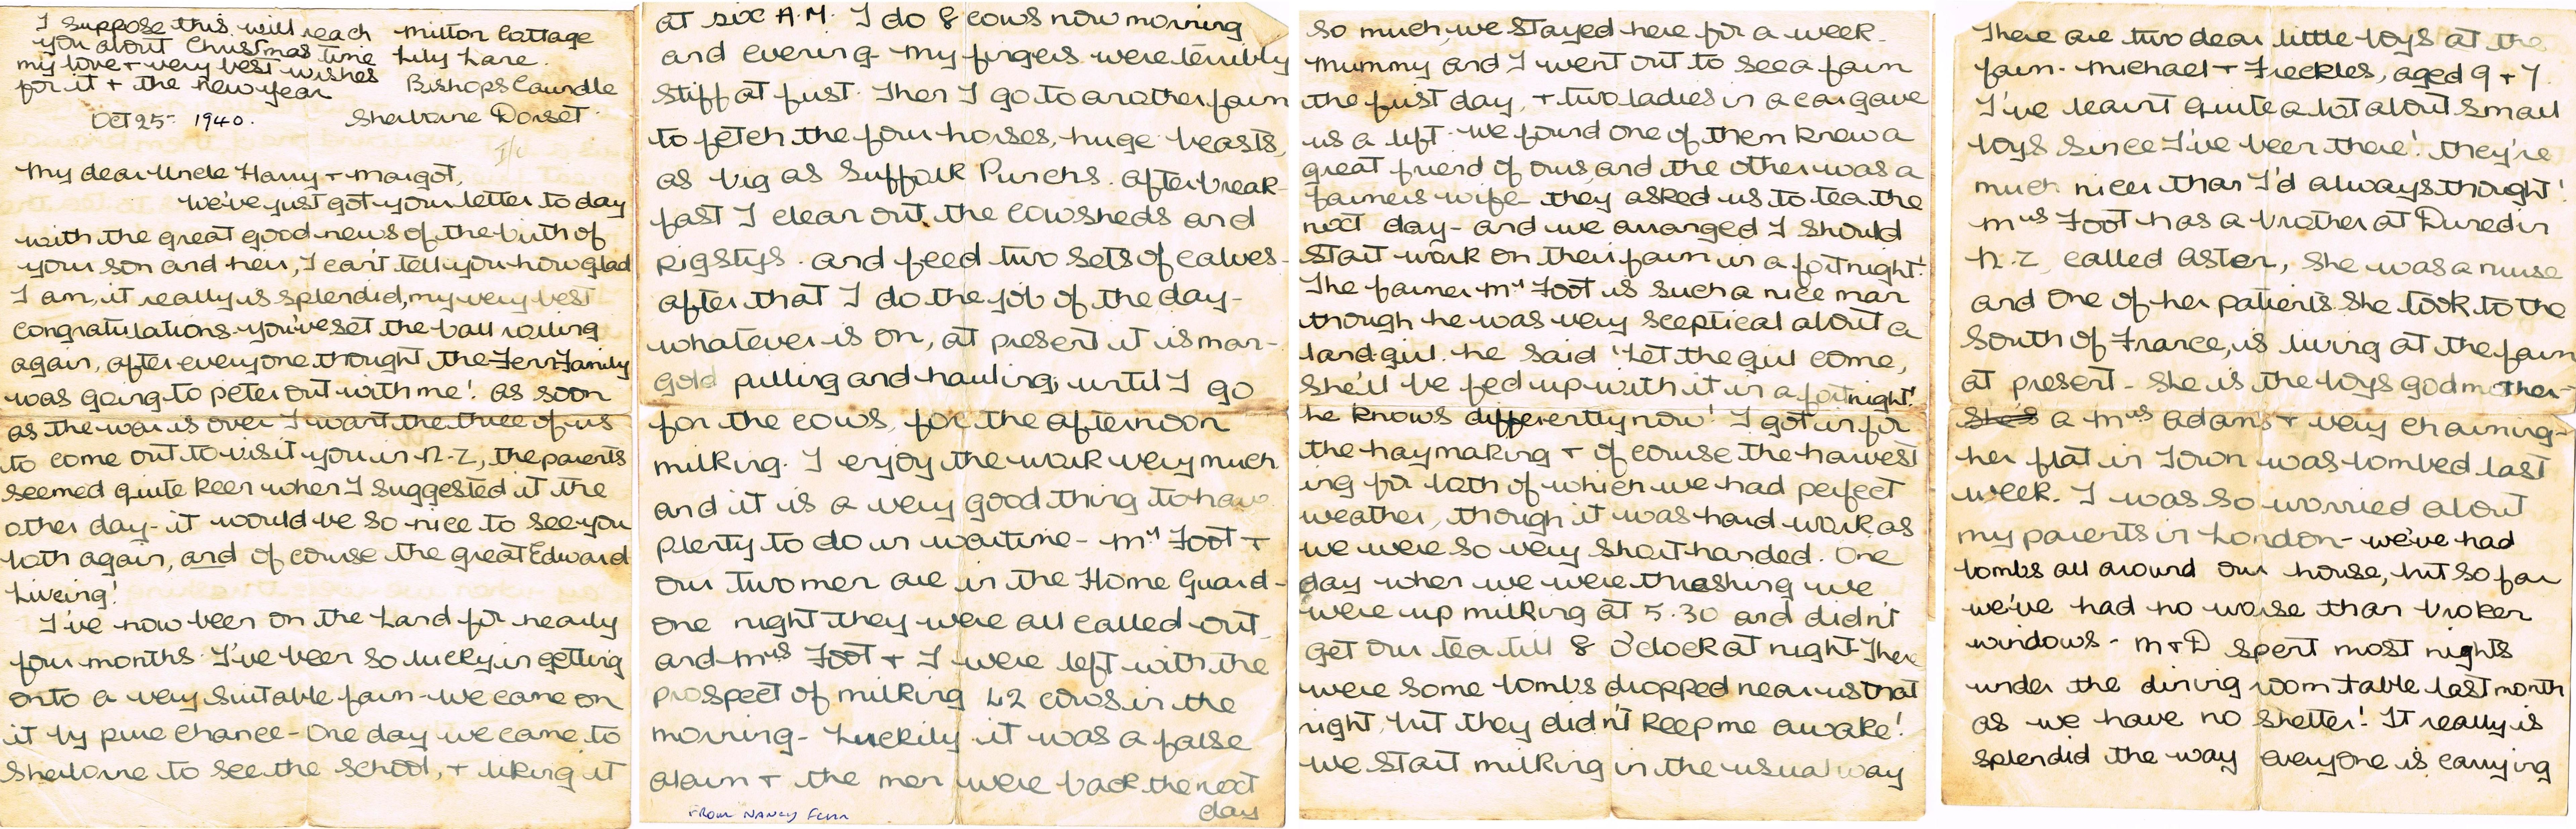 I suppose this will reach
you about Christmas time
my love + very best wishes
for it + the new year
Milton Cottage
Lily Lane.
Bishops Caundle
Sherborne Dorset.
Oct 25- 1940.
My dear Uncle Harry + Margot,
We've just got your letter to day
with the great good news of the birth of
your son and heir, I can't tell you how glad
I am, it really is splendid, my very best
congratulations you've set the ball rolling
again, after everyone thought the Fenn Family
was going to peter out with me! as soon
as the war is over I want the three of us
to come out to visit you in N.Z, the parents
seemed quite keen when I suggested it the
other day - it would be so nice to see you
both again, and of course the great Edward
Liveing!
I've now been on the Land for nearly
four months. I've been so lucky in getting
onto a very suitable farm - we came on
it by pure chance - One day we came to
Sherborne to see the School, + liking it
at six A.M. I do 8 cows now morning
and evening - my fingers were terribly
stiff at first. Then I go to another farm
to fetch the four horses, huge beasts,
as big as Suffolk Punchs. after break-
fast I clean out the cowsheds and
pigstys. and feed two sets of calves -
after that I do the job of the day -
whatever is on, at present it is man-
gold pulling and hauling, until I go
for the cows, for the afternoon
milking. I enjoy the work very much
and it is a very good thing to have
plenty to do in wartime - Mr Foot +
our two men are in the Home Guard -
one night they were all called out
and Mrs Foot + I were left with the
prospect of milking 42 cows in the
morning - Luckily it was a false
alarm + the men were back the next
day
FROM NANCY FENN
so much, we stayed here for a week.
Mummy and I went out to see a farm
the first day, + two ladies in a car gave
us a lift. we found one of them knew a
great friend of ours, and the other was a
farmers wife - they asked us to tea the
next day - and we arranged I should
start work on their farm in a fortnight!
The farmer Mr Foot is such a nice man
though he was very sceptical about a
land-girl. he said 'Let the girl come,
she'll be fed up with it in a fortnight!'
he knows differently now! I got in for
the haymaking + of course the harvest
ing for both of which we had perfect
weather, though it was hard work as
we were so very short-handed. One
day when we were thrashing we
were up milking at 5.30 and didn't
get our tea till 8 o'clock at night. There
were some bombs dropped near us that
night, but they didn't keep me awake!
we start milking in the usual way
There are two dear little boys at the
farm - Michael + Freckles, aged 9 + 7.
I've learnt quite a lot about small
boys since I've been there! they're
much nicer than I'd always thought!
Mrs Foot has a brother at Dunedin
N.Z, called Aston, she was a nurse
and one of her patients she took to the
South of France, is living at the farm
at present - she is the boys godmother -
She's a Mrs Adams + very charming -
her flat in Town was bombed last
week. I was so worried about
my parents in London - we've had
bombs all around our house, but so far
we've had no worse than broken
windows - M + D spent most nights
under the dining room table last month
as we have no shelter! It really is
splendid the way everyone is carrying